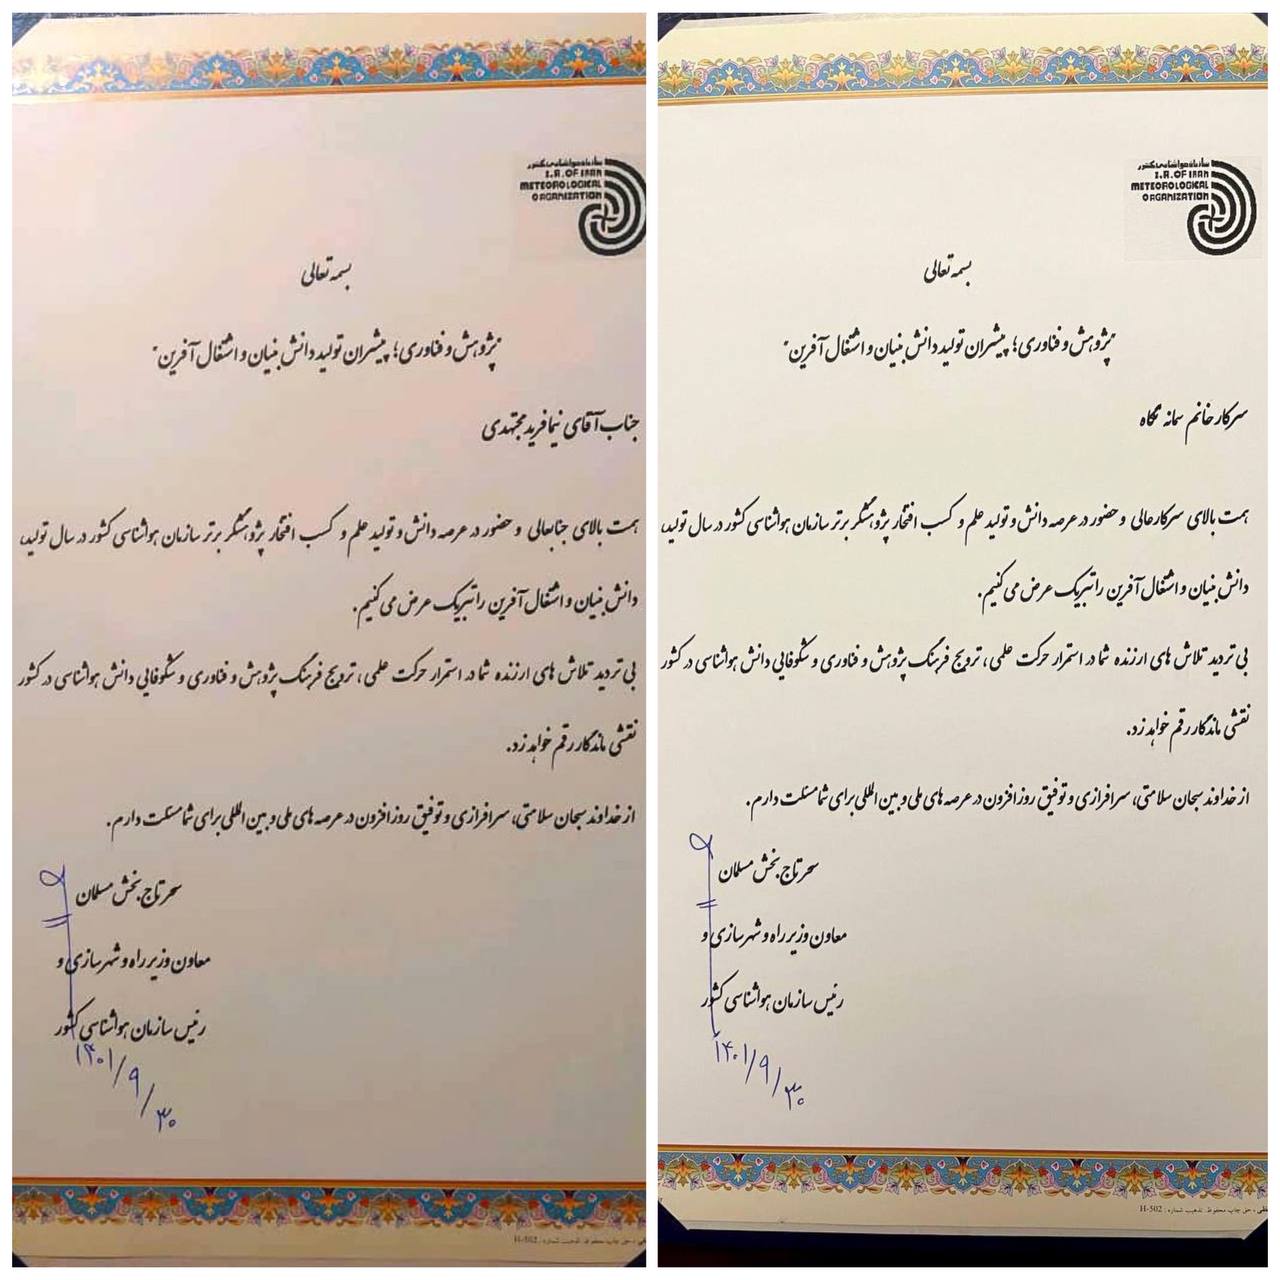 سازمان هواشناسی کشور
I.R.OF IRAN
METEOROLOGICAL
ORGANIZATION
بسمه تعالی
"پژوهش و فناوری؛ پیشران تولید دانش بنیان و اشتغال آفرین"
جناب آقای نیما فرید مجتهدی
همت بالای جنابعالی و حضور در عرصه دانش و تولید علم و کسب افتخار پژوهشگر برتر سازمان هواشناسی کشور در سال تولید،
دانش بنیان و اشتغال آفرین را تبریک عرض می کنیم.
بی تردید تلاش های ارزنده شما در استمرار حرکت علمی، ترویج فرهنگ پژوهش و فناوری و شکوفایی دانش هواشناسی در کشور
نقشی ماندگار رقم خواهد زد.
از خداوند سبحان سلامتی، سرافرازی و توفیق روزافزون در عرصه های ملی و بین المللی برای شما مسئلت دارم.
سحر تاج بخش مسلمان
معاون وزیر راه و شهرسازی و
رئیس سازمان هواشناسی کشور
۱۴۰۱/۹/۳۰
حق چاپ محفوظ. تذهیب شماره: H-502
سازمان هواشناسی کشور
I.R.OF IRAN
METEOROLOGICAL
ORGANIZATION
بسمه تعالی
"پژوهش و فناوری؛ پیشران تولید دانش بنیان و اشتغال آفرین"
سرکار خانم سمانه نگاه
همت بالای سرکارعالی و حضور در عرصه دانش و تولید علم و کسب افتخار پژوهشگر برتر سازمان هواشناسی کشور در سال تولید،
دانش بنیان و اشتغال آفرین را تبریک عرض می کنیم.
بی تردید تلاش های ارزنده شما در استمرار حرکت علمی، ترویج فرهنگ پژوهش و فناوری و شکوفایی دانش هواشناسی در کشور
نقشی ماندگار رقم خواهد زد.
از خداوند سبحان سلامتی، سرافرازی و توفیق روزافزون در عرصه های ملی و بین المللی برای شما مسئلت دارم.
سحر تاج بخش مسلمان
معاون وزیر راه و شهرسازی و
رئیس سازمان هواشناسی کشور
۱۴۰۱/۹/۳۰
حق چاپ محفوظ. تذهیب شماره: H-502